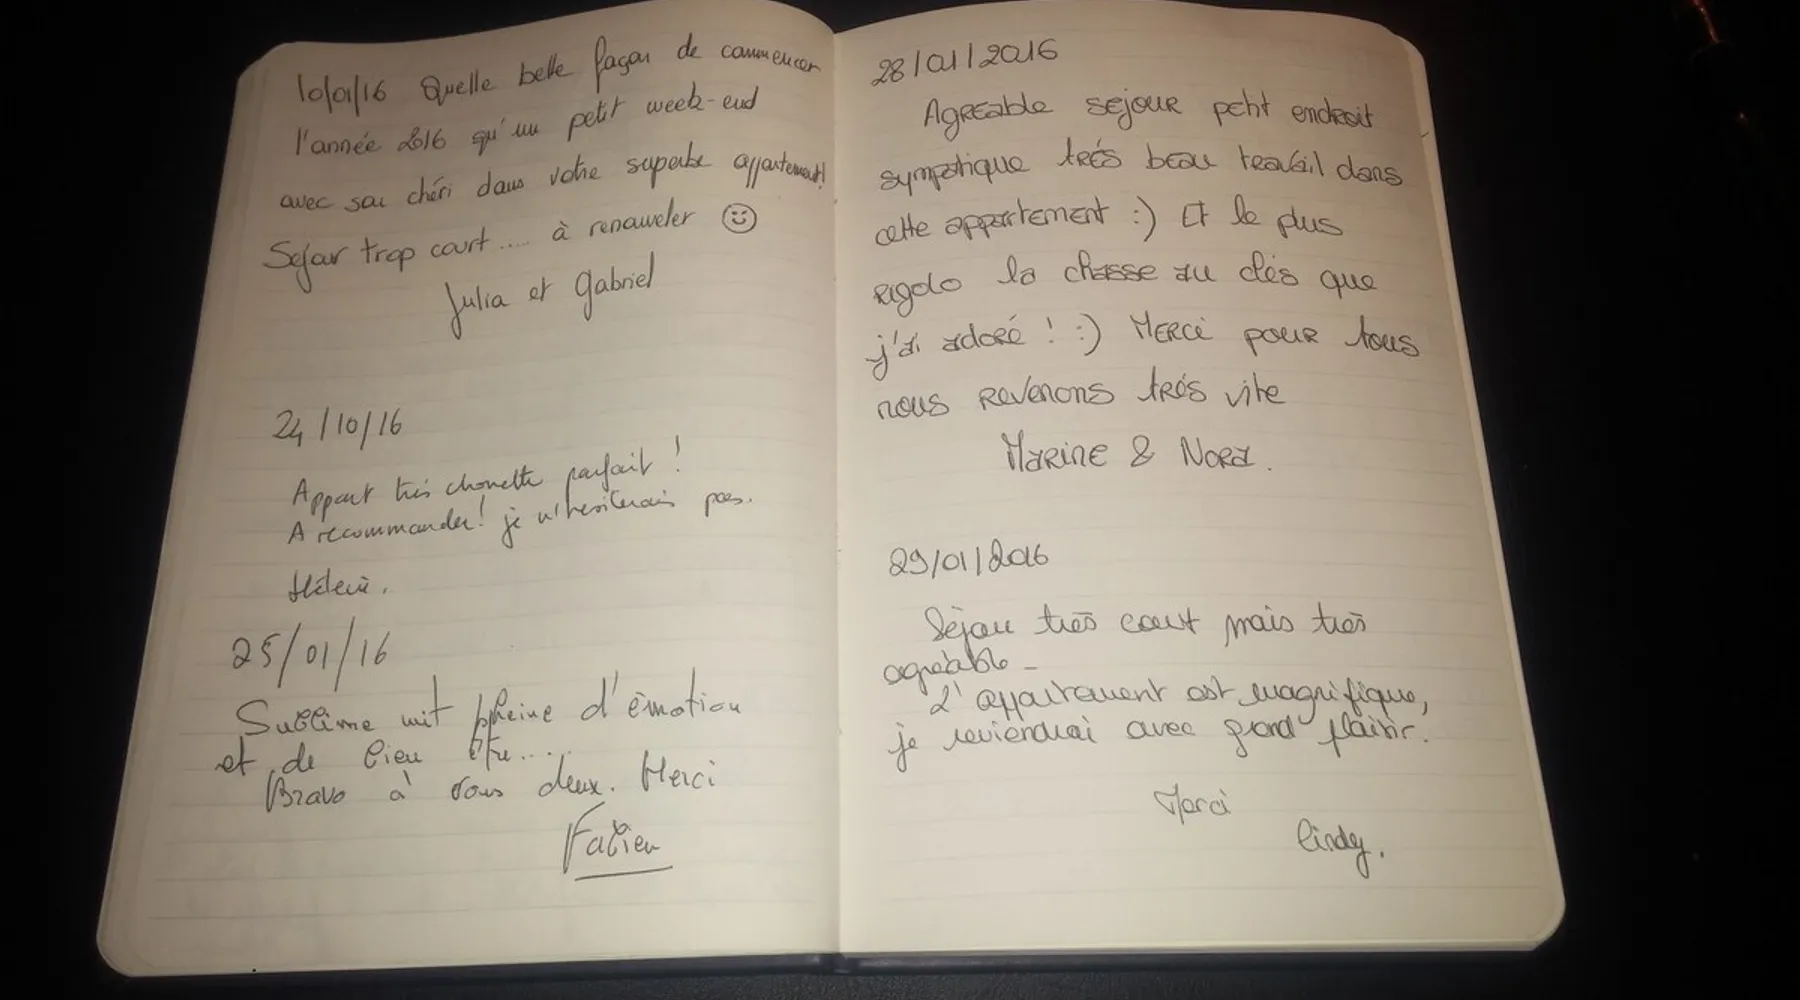 10/01/16 Quelle belle façon de commencer
l'année 2016 qu'un petit week-end
avec son chéri dans votre superbe appartement!
Sejour trop court .... à renouveler ☺
Julia et Gabriel
24/10/16
Appart très chouette parfait !
A recommander! je n'hesiterais pas.
Hélène.
25/01/16
Sublime nuit pleine d'émotion
et de bien être....
Bravo à vous deux. Merci
Fabien
28/01/2016
Agreable sejour petit endroit
sympatique trés beau travail dans
cette appartement :) Et le plus
rigolo la chasse au clés que
j'ai adoré ! :) Merci pour tous
nous revenons trés vite
Marine & Nora.
29/01/2016
Séjour très court mais très
agréable -
L'appartement est magnifique,
je reviendrai avec grand plaisir.
Merci
Cindy.